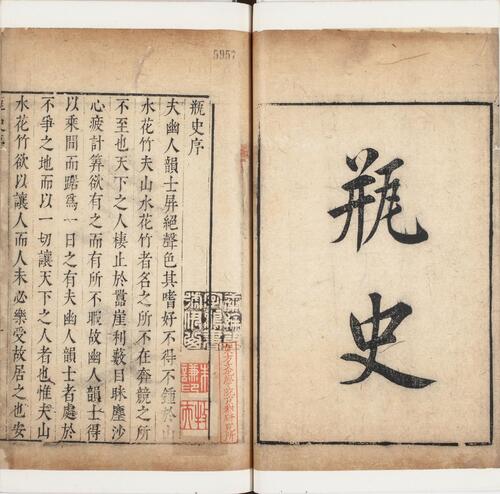 瓶史
5957
瓶史序
夫幽人韻士屏絕聲色其嗜好不得不鍾於山
水花竹夫山水花竹者名之所不在奔競之所
不至也天下之人棲止於囂崖利藪目眯塵沙
心疲計筭欲有之而有所不暇故幽人韻士得
以乘間而踞爲一日之有夫幽人韻士者處於
不爭之地而以一切讓天下之人者也惟夫山
水花竹欲以讓人而人未必樂受故居之也安